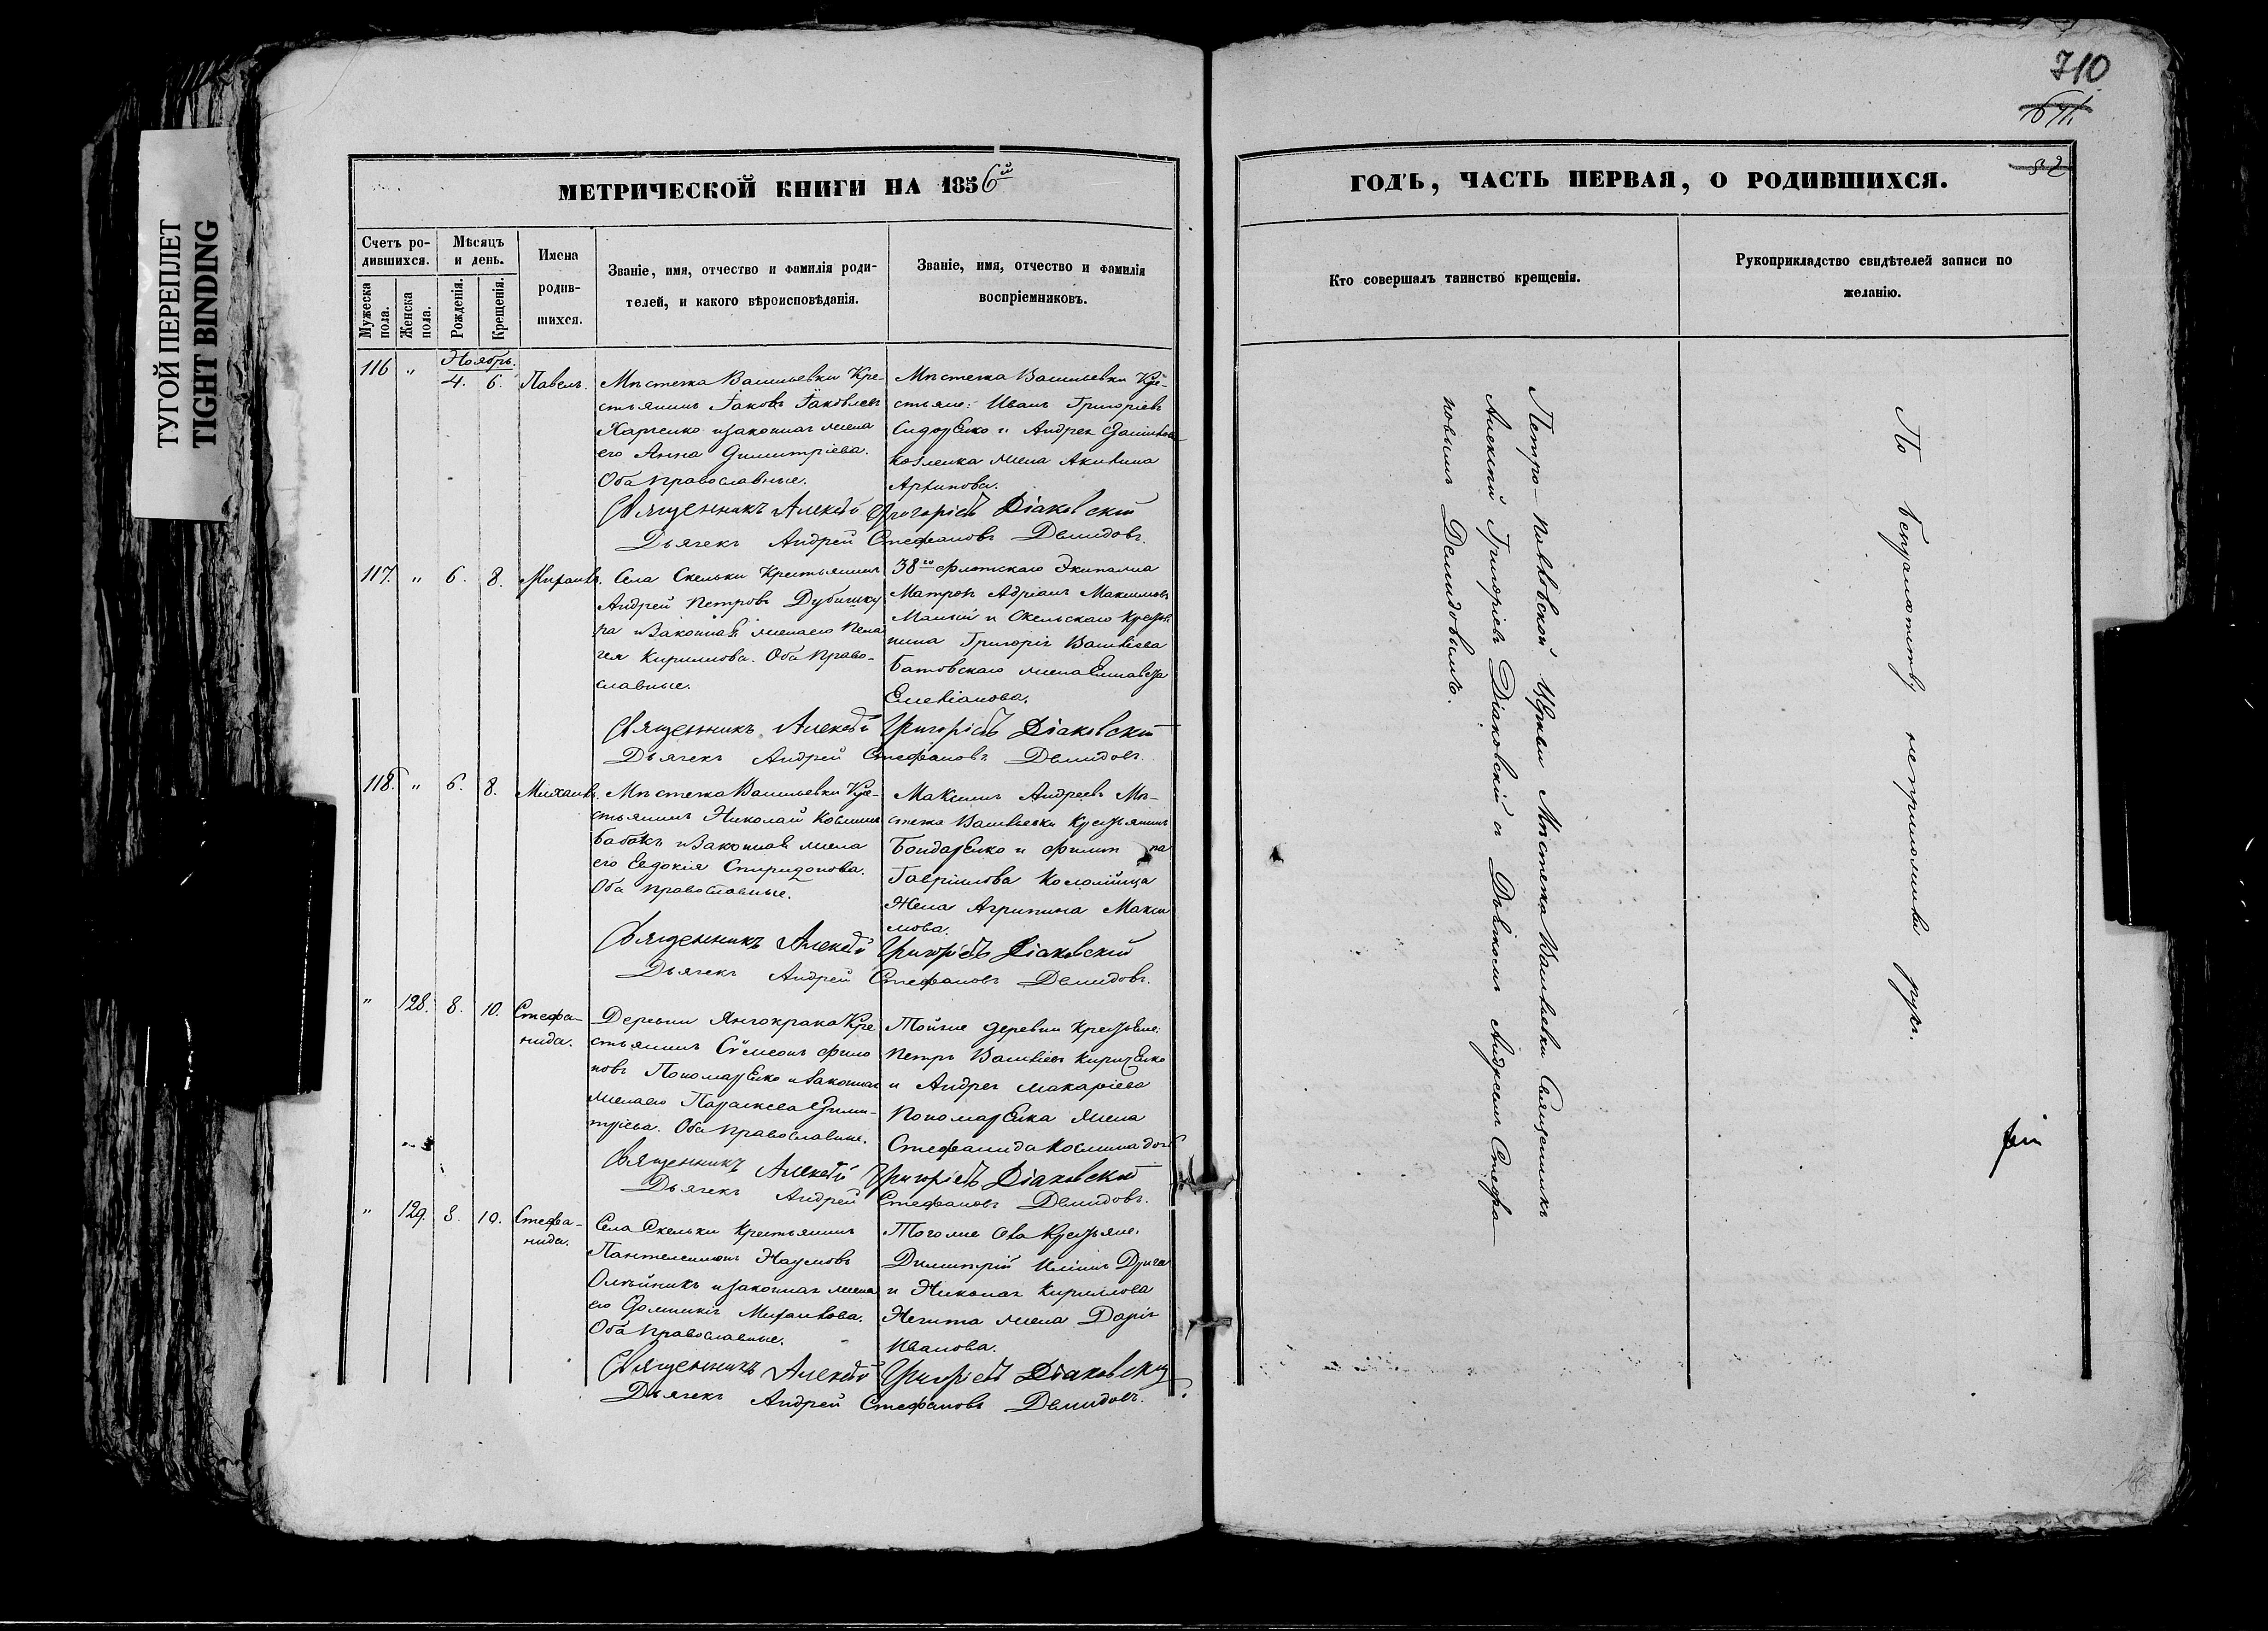 710
ТУГОЙ ПЕРЕПЛЕТ
TIGHT BINDING
МЕТРИЧЕСКОЙ КНИГИ НА 1856й
Счетъ ро-
дившихся.
Мѣсяцъ
и день.
Мужеска
пола.
Женска
пола.
Рожденія.
Крещенія.
Имена
родив-
шихся.
Званіе, имя, отчество и фамилія роди-
телей, и какого вѣроисповѣданія.
Званіе, имя, отчество и фамилія
воспріемниковъ.
Ноябрь.
116 " 4. 6. Павелъ.
Мѣстечка Васильевки Кре-
стьянинъ Іаковъ Іаковлевъ
Харченко и законная жена
его Анна Димитріева.
Оба православные.
Мѣстечка Васильевки Кре-
стьяне: Иванъ Григоріевъ
Сидоренко и Андрея
Козленка жена Акилина
Архипова.
Священникъ Алексѣй Григорьевъ Діаковскій
Дьячекъ Андрей Стефановъ Демидовъ.
117. " 6. 8. Михаилъ.
Села Скельки Крестьянинъ
Андрей Петровъ Дубишку
ра и законная жена его Пела
гея Кириллова. Оба право-
славные.
38го флотскаго Экипажа
Матросъ Адріанъ Максимовъ
и Скельскаго Кресть
нина Григорія Васильева
Батовскаго жена Елисавета
Емеліанова.
Священникъ Алексѣй Григорьевъ Діаковскій
Дьячекъ Андрей Стефановъ Демидовъ
118. " 6. 8. Михаилъ.
Мѣстечка Васильевки Кре-
стьянинъ Николай Косминъ
Бабакъ и законная жена
его Евдокія Спиридонова.
Оба православные.
Максимъ Андреевъ Мѣ-
стечка Васильевки Крестьянинъ
Бондаренко и Филип па
Гавріилова Коломійца
Жена Агрипина Макси
мова.
Священникъ Алексѣй Григорьевъ Діаковскій
Дьячекъ Андрей Стефановъ Демидовъ.
" 128. 8. 10. Стефа-
нида.
Деревни Янчокрака Кре
стьянинъ Сѵмеонъ Фило
новъ Пономаренко и законная
жена его Параскева Дими-
тріева. Оба православные.
Тойже деревни Крестьяне:
Петръ Васильевъ Кириченко
и Андрея Макаріева
Пономаренка жена
Стефанида Космина дочь
Священникъ Алексѣй Григорьевъ Діаковскій
Дьячекъ Андрей Стефановъ Демидовъ.
" 129. 8. 10. Стефа-
нида.
Села Скельки Крестьянинъ
Пантелеимонъ Наумовъ
Олѣйникъ и законная жена
его Домникія Михаилова.
Оба православные.
Тогоже села Крестьяне:
Димитрій Иліинъ Дрига
и Николая Кириллова
жена Дарія
Иванова.
Священникъ Алексѣй Григорьевъ Діаковскій
Дьячекъ Андрей Стефановъ Демидовъ.
ГОДЪ, ЧАСТЬ ПЕРВАЯ, О РОДИВШИХСЯ.
Кто совершалъ таинство крещенія.
Рукоприкладство свидѣтелей записи по
желанію.
Петро-Павловской Церкви Мѣстечка Васильевки Священникъ
Алексѣй Григорьевъ Діаковскій съ Дьячкомъ Андреемъ Стефа-
новымъ Демидовымъ.
По безграмотству неприложили рукъ.